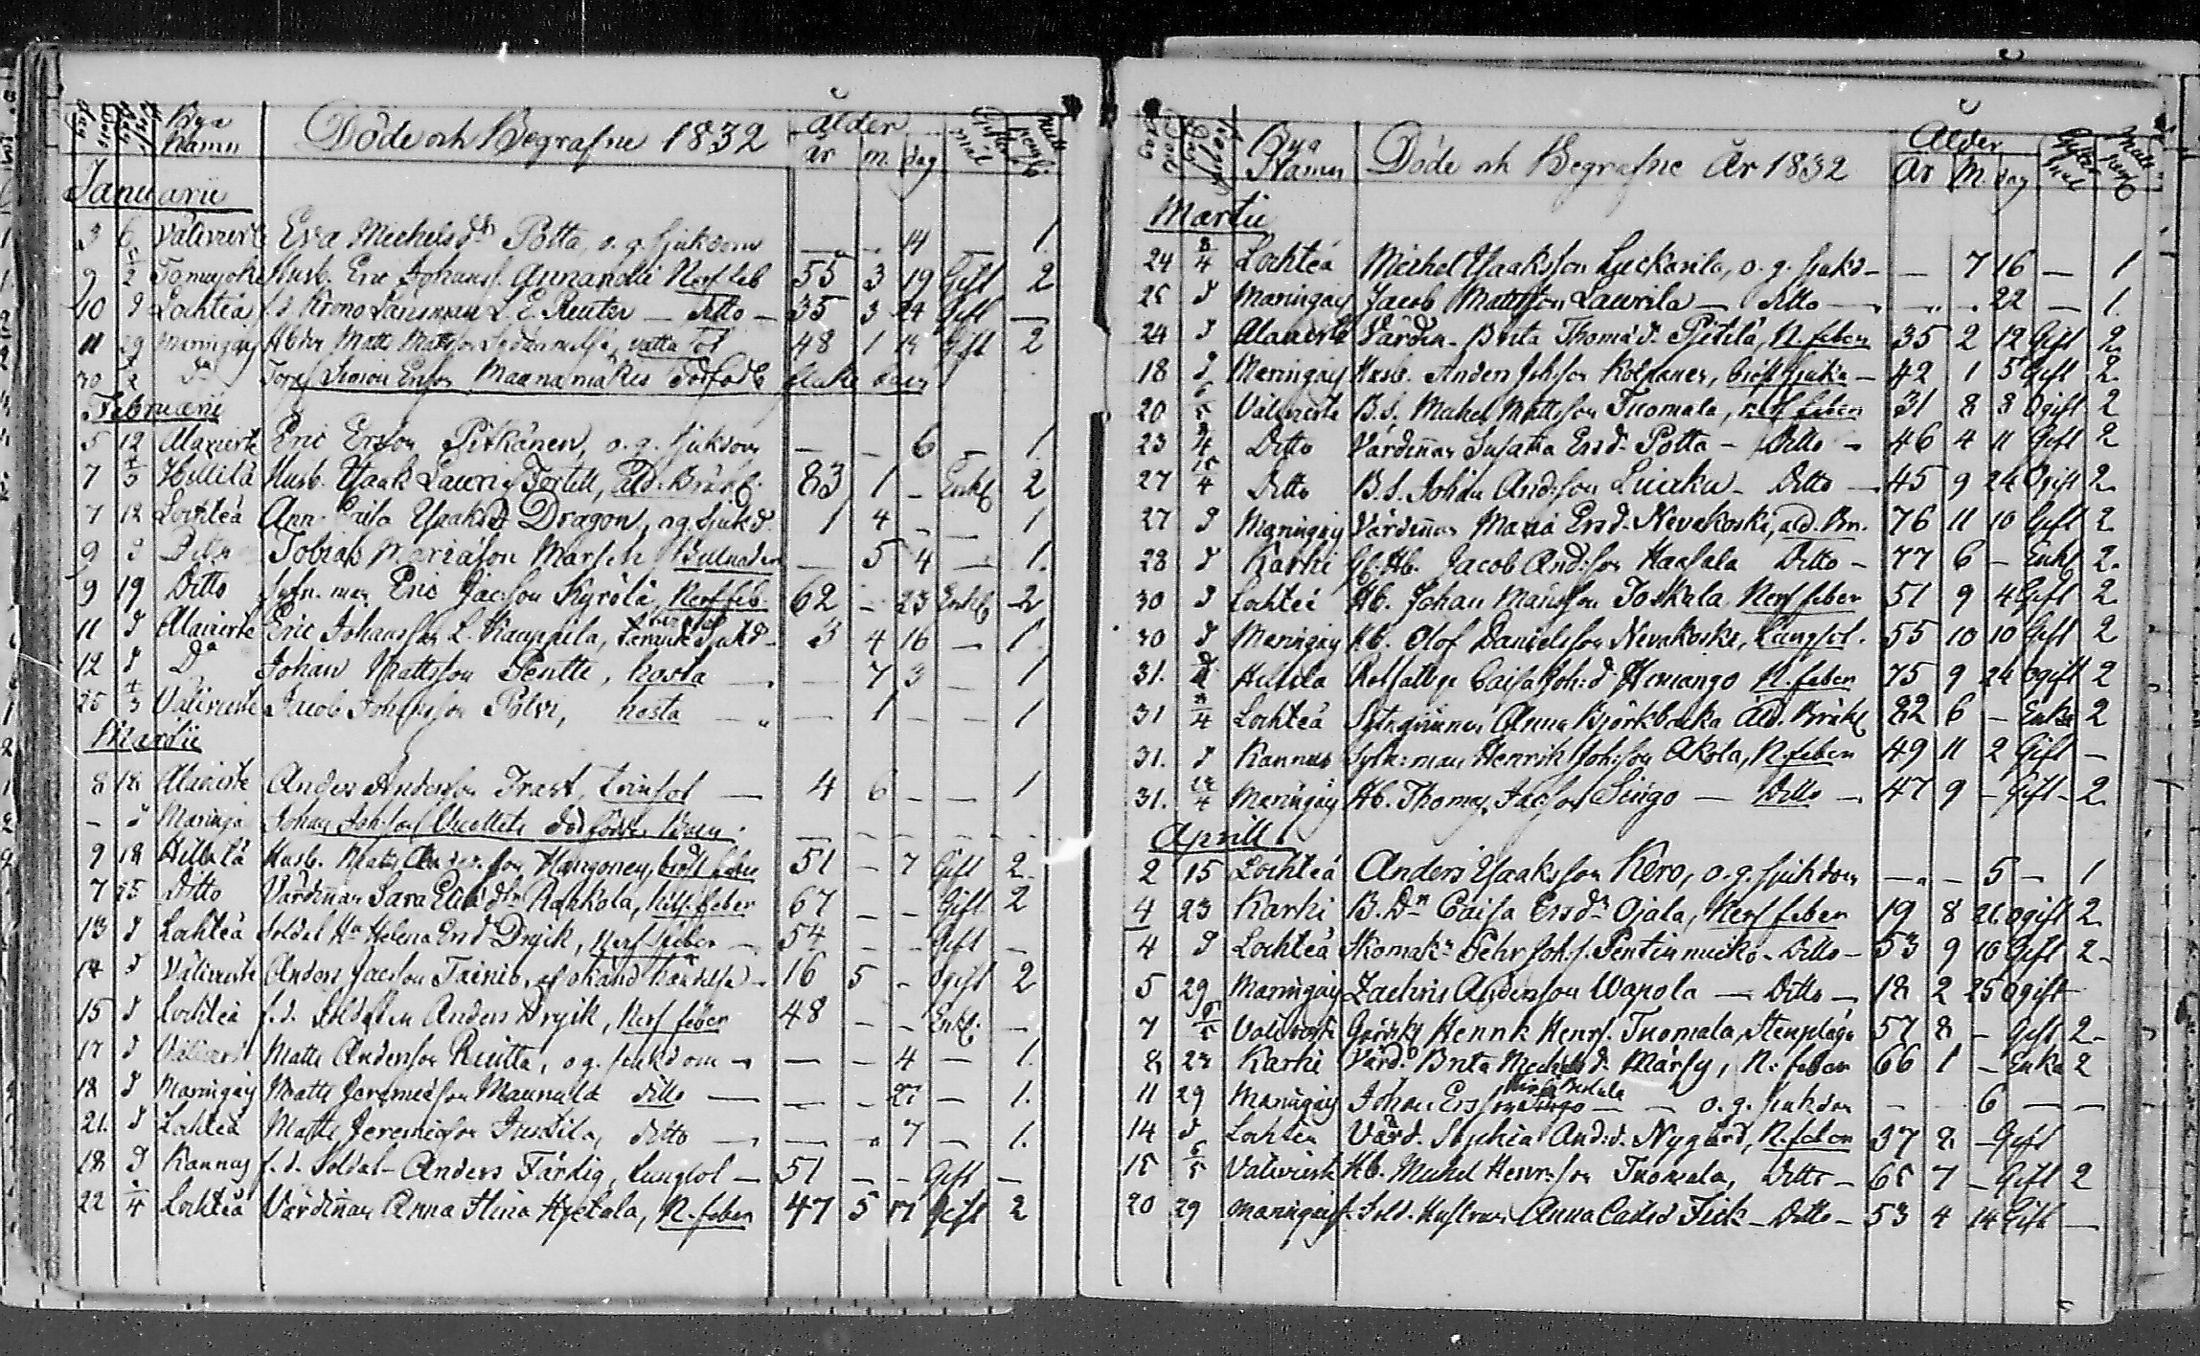 Bya Namn Döde och Begrafne 1832 ålder Giftermål
år m. dag
Januarii
3 6 Välivirre Eva Michelsdr Potta, o.g. sjukdom — — 14 — 1.
9 5/2 Tomujoki Husb. Eric Johanss. Annanolli Nerffeb 55 3 19 Gift 2
10 d Lochteå f.d. Krono Länsman L. E. Reuter — ditto — 35 3 24 Gift —
11 29 Maringaj Matts Mattsson vattusot 48 1 Gift 2
30 Do Torp. Simon Erss. Maanamäkis dödfödt flicke barn
Februarii
5 12 Alavirre Eric Ersson Pitkänen, o.g. sjukdom — — 6 — 1.
7 4/3 Hillilä Husb. Isaak Lauris Tortell, åld. Bräckl. 83 1 — Enkl 2
7 12 Lochteå Ann Caisa Isaksd Dragon, o.g. sjukd. 1 4 — 1
9 d Ditto Tobias Mariasson Marsch — 5 4 — 1.
9 19 Ditto Eric Jacsson Kyrölä, Nerffeb 62 — 23 Enkl 2
11 d Alavirre Eric Johansson L. Kauppila, 3 4 16 — 1
12 d Do Johan Mattsson Pentte, hosta — 7 3 — 1
25 4/3 Välivirre Jacob Johansson Polvi, hosta — 1 — — 1
Martii
8 18 Alavirre Anders Andersson Trast, 4 6 — — 1
— d Maringa Johan Johsson dödfödde Barn.
9 18 Hillilä Husb. Matts Anderson Hangoney, bröstfeber 51 — 7 Gift 2.
7 25 Ditto Värdinnan Sara Eliædtr Rahkola, feber 67 — — Gift 2
13 d Lochteå Soldat Ha Helena Ersd Dryik, Nerffeber — 54 — — Gift —
14 d Välivirre Anders Jacsson Tainio, af okänd händelse — 16 5 — Ogift 2
15 d Lochteå f.d. Soldaten Anders Dryik, Nerffeber 48 — — Enkl. —
17 d Välivirre Matts Anderson Ruitta, o.g. sjukdom — — — 4 — 1.
18 d Maringaj Matts Jeremiesson Maunula ditto — — — 27 — 1.
21. d Lochteå Matts Jeremiesson Jussila, ditto — — 7 — 1.
18 d Kannus f.d. Soldat Anders Färdig, lungsot — 51 — — Gift —
22 1/4 Lochteå Värdinnan Anna Stina Hietala, N. feber 47 5 17 Gift 2
Bya Namn Döde och Begrafne År 1832 Ålder Giftermål
År M dag
Martii
24 8/4 Lochteå Michel Isaksson Luckarila, o.g. sjukd — — 7 16 — 1
25 d Maringaj Jacob Mattsson Laurila — ditto — 22 — 1.
24 d Alavirre Värdin. Brita Thomæd. Pitilä, N. feber 35 2 12 Gift 2
18 d Maringaj Husb. Anders Johsson Kolpaner, bröstsjuka — 42 1 5 Gift 2.
20 6/5 Välivirre B.S. Michel Mattsson Tuomala, nerf feber 31 8 8 Ogift 2
23 8/4 Ditto Värdinnan Susanna Ersd. Potta — Ditto — 46 4 11 Gift 2
27 15/4 Ditto B.S. Johan Andsson Luukku — Ditto — 45 9 24 Ogift 2.
27 d Maringaj Värdinnan Maria Ersd. Nevakoski, åld. Br. 76 11 10 Gift 2.
28 d Karhi Jacob Andsson Haasala Ditto — 77 6 — Enkl 2.
30 d Lochteå Hb. Johan Månsson Toskala Nerf feber 51 9 4 Gift 2.
30 d Maringaj Hb. Olof Danielsson Nevakoski, Lungsot. 55 10 10 Gift 2
31. d Hillilä Caisa Joh:d. Hemango N. feber 75 9 24 Ogift 2
31 8/4 Lochteå Anna Björkbacka Åld. Bräkl 82 6 — Enka 2
31. d Kannus Sytn:man Henrik Johsson Akola, N. feber 49 11 2 Gift —
31. 4 Maringaj Hb. Thomas Jacsson Singo — Ditto — 47 9 — Gift — 2.
Aprill
2 15 Lochteå Anders Isaksson Kero, o.g. sjukdom — — 5 — 1
4 23 Karhi B. Dr Caisa Ersdr Ojala, Nerf feber 19 8 26 Ogift 2.
4 d Lochteå Skomakr Pehr Johs. Pentinmicko — Ditto — 53 9 10 Gift 2.
5 29 Maringaj Zachris Andersson Wapola — Ditto — 18 2 25 Ogift
7 6/5 Välivirre Henrik Henrs. Tuomala, Stenplåga 57 8 — Gift 2.
8 23 Karhi Värd. Brita Michelsd. Märsy, N: feber 66 1 — Enka 2
11 29 Maringaj Johan Ersson — o.g. sjukdom — — 6 — —
14 d Lochteå Värd. Sophia And:d. Nygård, N. feber 37 8 — Gift
15 6/5 Välivirre Hb. Michel Henrsson Tuomala, Ditto — 65 7 — Gift 2
20 29 Maringaj f. Sold. Hustrun Anna Carlsd Fick — Ditto — 53 4 14 Gift —